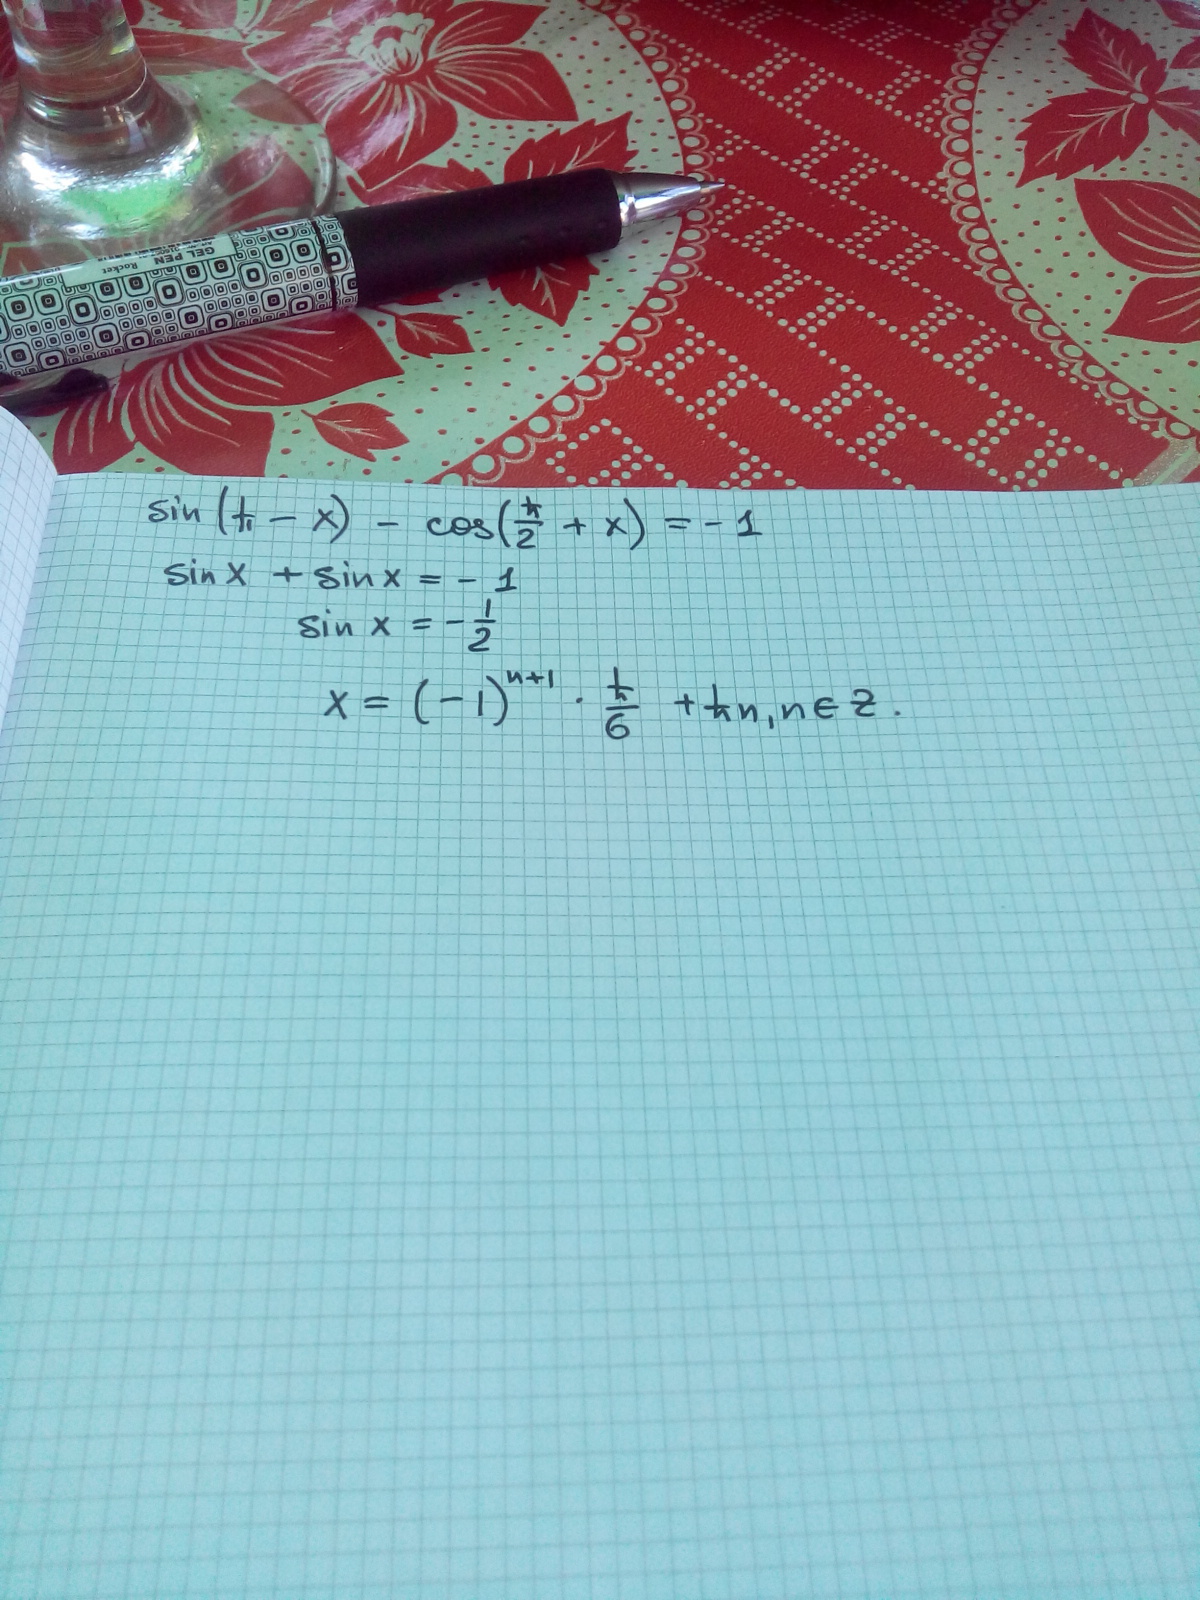 GEL PEN
Rocket
sin(π − x) − cos(π/2 + x) = −1
sin x + sin x = −1
sin x = −1/2
x = (−1)^(n+1) · π/6 + πn, n ∈ Z.